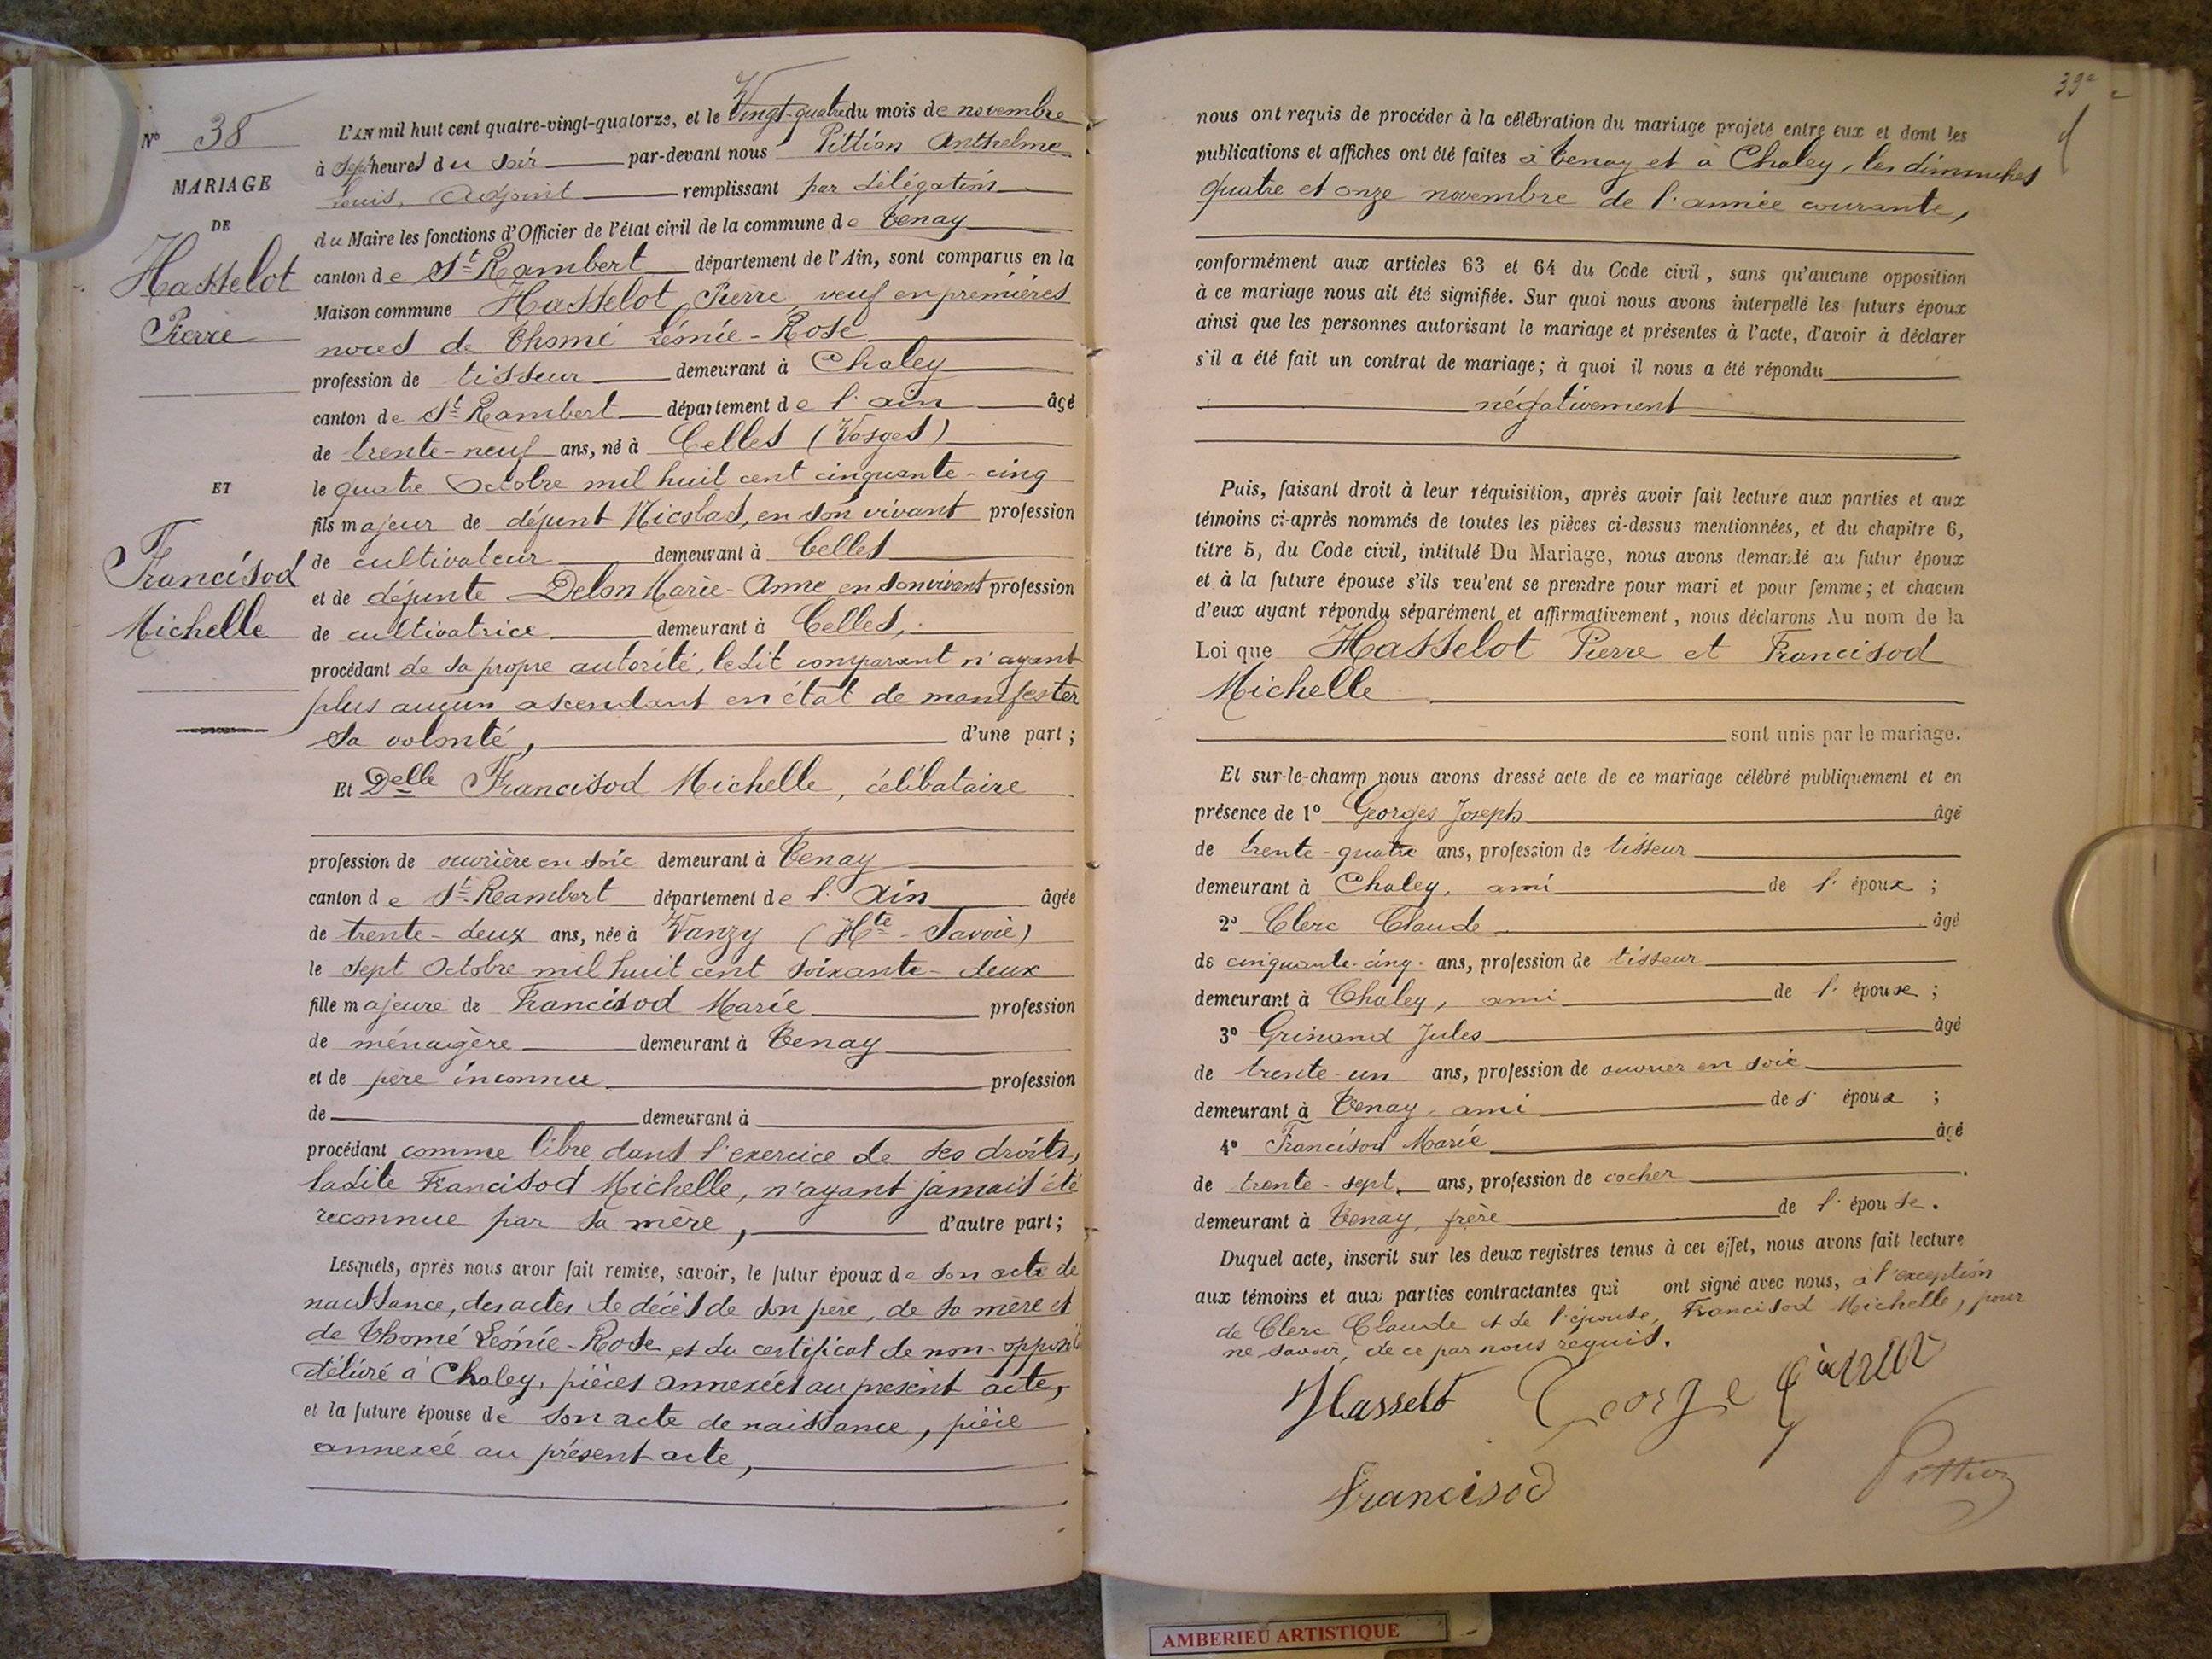 N° 38
MARIAGE
DE
Hasselot
Pierre
ET
Francisod
Michelle
L'AN mil huit cent quatre-vingt-quatorze, et le Vingt-quatre du mois de novembre
à sept heures du soir par-devant nous Pittion Anthelme
Louis, Adjoint remplissant par délégation
du Maire les fonctions d'Officier de l'état civil de la commune de Tenay
canton de St Rambert département de l'Ain, sont comparus en la
Maison commune Hasselot Pierre veuf en premières
noces de Thomé Léonie-Rose
profession de tisseur demeurant à Chaley
canton de St Rambert département de l'ain âgé
de trente-neuf ans, né à Celles (Vosges)
le quatre Octobre mil huit cent cinquante-cinq
fils majeur de défunt Nicolas, en son vivant profession
de cultivateur demeurant à Celles
et de défunte Delon Marie-Anne en son vivant profession
de cultivatrice demeurant à Celles,
procédant de sa propre autorité, ledit comparant n'ayant
plus aucun ascendant en état de manifester
sa volonté, d'une part ;
Et Delle Francisod Michelle, célibataire
profession de ouvrière en soie demeurant à Tenay
canton de St Rambert département de l'Ain âgée
de trente-deux ans, née à Vanzy (Hte-Savoie)
le sept Octobre mil huit cent soixante-deux
fille majeure de Francisod Marie profession
de ménagère demeurant à Tenay
et de père inconnu profession
de demeurant à
procédant comme libre dans l'exercice de ses droits,
ladite Francisod Michelle, n'ayant jamais été
reconnue par sa mère, d'autre part ;
Lesquels, après nous avoir fait remise, savoir, le futur époux de son acte de
naissance, des actes de décès de son père, de sa mère et
de Thomé Léonie-Rose et du certificat de non-opposit
délivré à Chaley, pièces annexées au présent acte,
et la future épouse de son acte de naissance, pièce
annexée au présent acte,
39e
nous ont requis de procéder à la célébration du mariage projeté entre eux et dont les
publications et affiches ont été faites à Tenay et à Chaley, les dimanches
quatre et onze novembre de l'année courante,
conformément aux articles 63 et 64 du Code civil, sans qu'aucune opposition
à ce mariage nous ait été signifiée. Sur quoi nous avons interpellé les futurs époux
ainsi que les personnes autorisant le mariage et présentes à l'acte, d'avoir à déclarer
s'il a été fait un contrat de mariage ; à quoi il nous a été répondu
négativement
Puis, faisant droit à leur réquisition, après avoir fait lecture aux parties et aux
témoins ci-après nommés de toutes les pièces ci-dessus mentionnées, et du chapitre 6,
titre 5, du Code civil, intitulé Du Mariage, nous avons demandé au futur époux
et à la future épouse s'ils veulent se prendre pour mari et pour femme ; et chacun
d'eux ayant répondu séparément et affirmativement, nous déclarons Au nom de la
Loi que Hasselot Pierre et Francisod
Michelle
sont unis par le mariage.
Et sur-le-champ nous avons dressé acte de ce mariage célébré publiquement et en
présence de 1° Georges Joseph âgé
de trente-quatre ans, profession de tisseur
demeurant à Chaley, ami de l'époux ;
2° Clerc Claude âgé
de cinquante-cinq ans, profession de tisseur
demeurant à Chaley, ami de l'épouse ;
3° Jules âgé
de trente-un ans, profession de ouvrier en soie
demeurant à Tenay, ami de l'époux ;
4° Francisod Marie âgé
de trente-sept ans, profession de cocher
demeurant à Tenay, frère de l'épouse.
Duquel acte, inscrit sur les deux registres tenus à cet effet, nous avons fait lecture
aux témoins et aux parties contractantes qui ont signé avec nous, à l'exception
de Clerc Claude et de l'épouse, Francisod Michelle, pour
ne savoir, de ce par nous requis.
Hasselot George
Francisod Pittion
AMBERIEU ARTISTIQUE